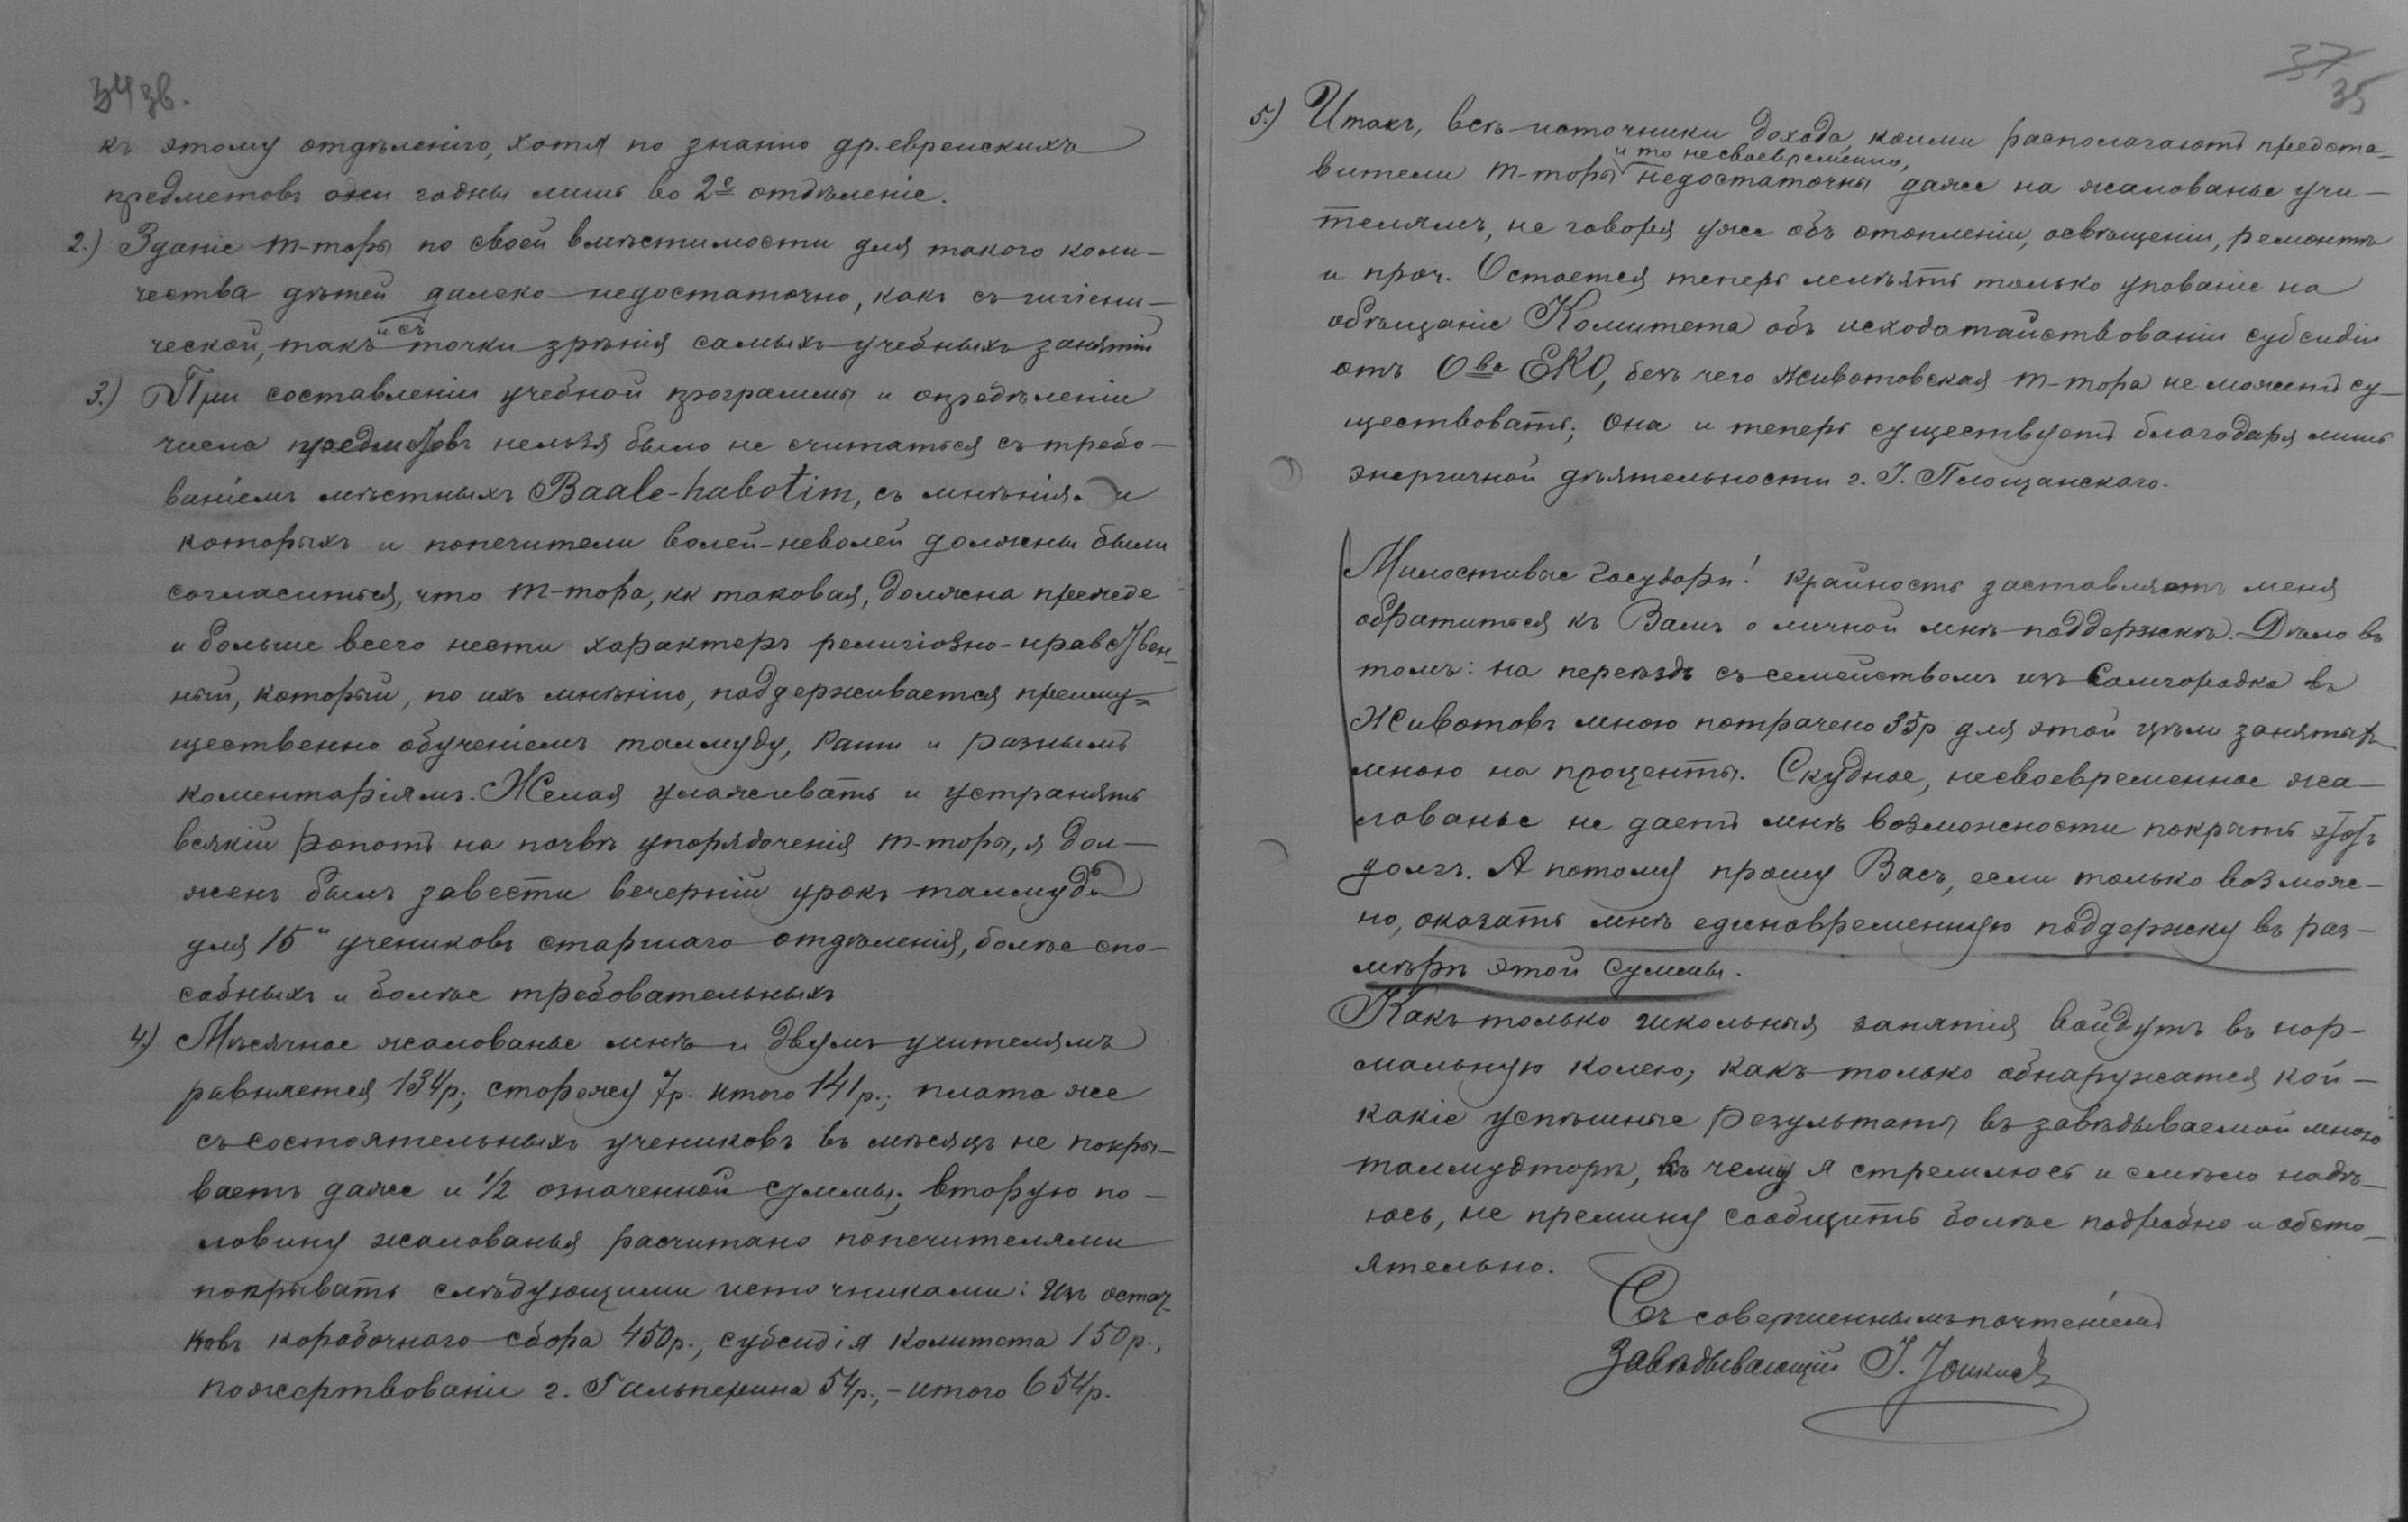 34 зв.
къ этому отдѣленію, хотя по знанію др. еврейскихъ
предметовъ они годны лишь во 2е отдѣленіе.
2.) Зданіе т-торы по своей вмѣстимости для такого коли-
чества дѣтей далеко недостаточно, какъ съ гигіени-
ческой, такъ и съ точки зрѣнія самыхъ учебныхъ занятій
3.) При составленіи учебной программы и опредѣленіи
числа предметовъ нельзя было не считаться съ требо-
ваніемъ мѣстныхъ Baale-habotim, съ мнѣнія и
которыхъ и попечители волей-неволей должны были
согласиться, что т-тора, кк таковая, должна прежде
и больше всего нести характеръ религіозно-нравствен-
ный, который, по ихъ мнѣнію, поддерживается преиму-
щественно обученіемъ талмуду, Раши и разнымъ
коментаріямъ. Желая улаживать и устранять
всякій ропотъ на почвѣ упорядоченія т-торы, я дол-
женъ былъ завести вечерній урокъ талмуда
для 15и учениковъ старшаго отдѣленія, болѣе спо-
собныхъ и болѣе требовательныхъ
4.) Мѣсячное жалованье мнѣ и двумъ учителямъ
равняется 134р; сторожу 7р. итого 141р.; плата же
съ состоятельныхъ учениковъ въ мѣсяцъ не покры-
ваетъ даже и 1/2 означенной суммы; вторую по-
ловину жалованья расчитано попечителями
покрывать слѣдующими источниками: Изъ остат-
ковъ коробочнаго сбора 450р., субсидія Комитета 150р.,
пожертвованіи г. Гальперина 54р., - итого 654р.
37
35
5.) Итакъ, всѣ источники дохода, коими располагаютъ предста-
и то несвоевременно,
вители т-торы недостаточны даже на жалованье учи-
телямъ, не говоря уже объ отопленіи, освѣщеніи, ремонтѣ
и проч. Остается теперь лелѣять только упованіе на
обѣщаніе Комитета объ исходатайствованіи субсидіи
отъ Ова ЕКО, безъ чего Животовская т-тора не можетъ су-
ществовать; она и теперь существуетъ благодаря лишь
энергичной дѣятельности г. І. Площанскаго.
Милостивые Государи! Крайность заставляетъ меня
обратиться къ Вамъ о личной мнѣ поддержкѣ. Дѣло въ
томъ: на переѣздъ съ семействомъ изъ Самгородка въ
Животовъ мною потрачено 35р для этой цѣли занятыхъ
мною на проценты. Скудное, несвоевременное жа-
лованье не даетъ мнѣ возможности покрыть этотъ
долгъ. А потому прошу Васъ, если только возмож-
но, оказать мнѣ единовременную поддержку въ раз-
мѣрѣ этой суммы.
Какъ только школьныя занятія войдутъ въ нор-
мальную колею, какъ только обнаружатся кой-
какіе успѣшные результаты въ завѣдываемой мною
талмудторѣ, къ чему я стремлюсь и смѣло надѣ-
юсь, не премину сообщить болѣе подробно и обсто-
ятельно.
Съ совершеннымъ почтеніемъ
Завѣдывающій І.